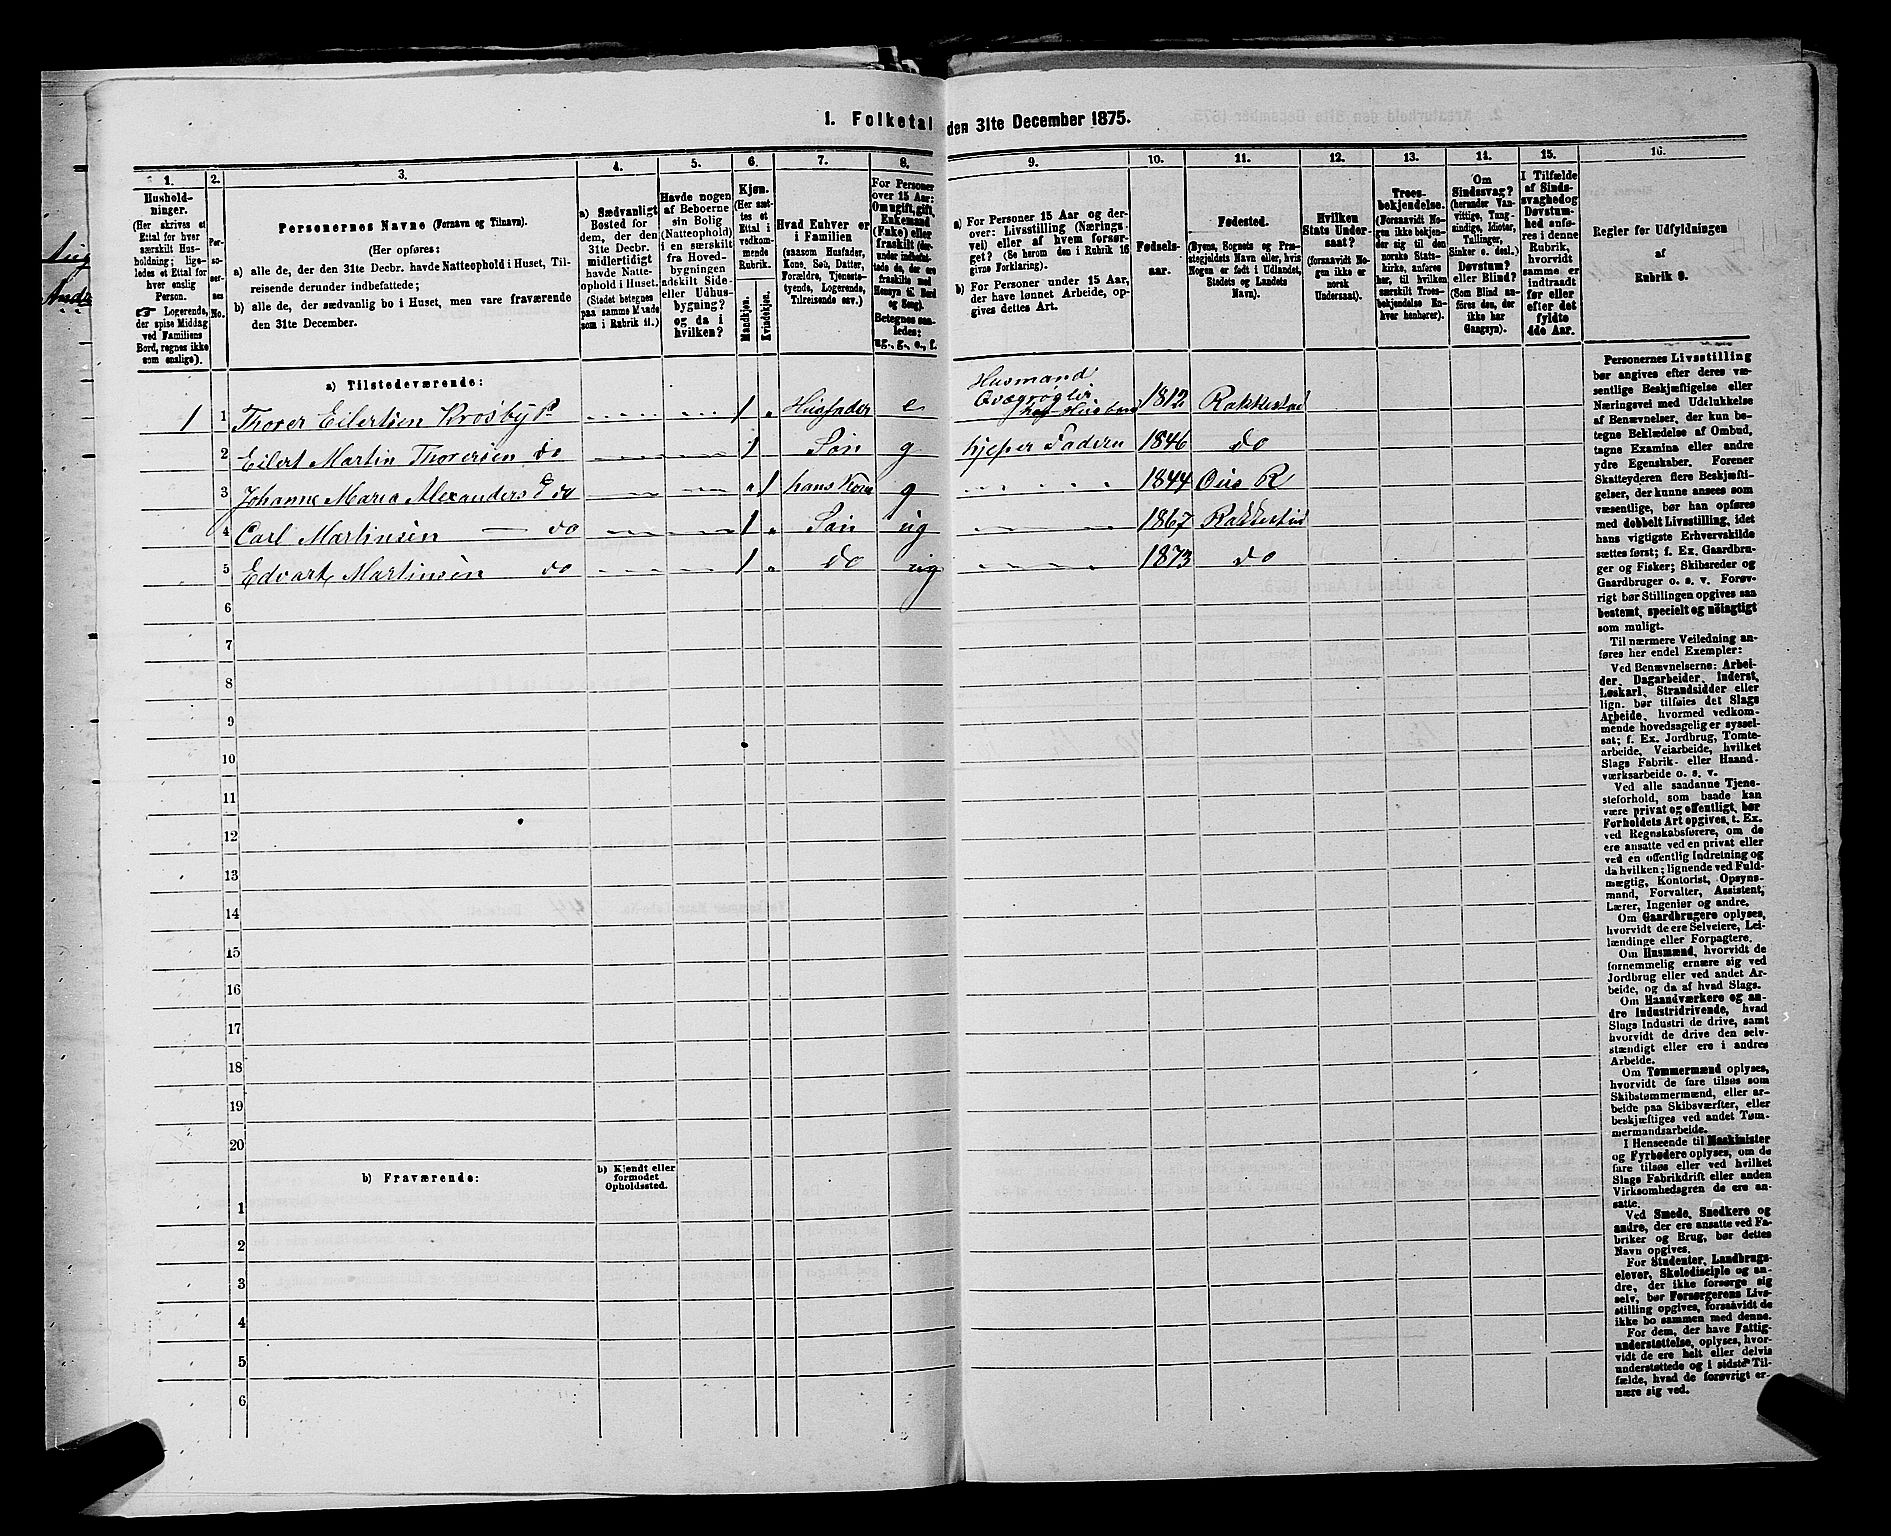 1. Folketal den 31te December 1875.
1.
Hushold-
ninger.
(Her skrives et
Ettal for hver
særskilt Hus-
holdning; lige-
ledes et Ettal for
hver enslig
Person.
☛ Logerende,
der spise Middag
ved Familiens
Bord, regnes ikke
som enslige).
2.
Per-
so-
ner-
nes
No.
3.
Personernes Navne (Fornavn og Tilnavn).
(Her opføres:
a) alle de, der den 31te Decbr. havde Natteophold i Huset, Til-
reisende derunder indbefattede;
b) alle de, der sædvanlig bo i Huset, men vare fraværende
den 31te December.
4.
a) Sædvanligt
Bosted for
dem, der den
31te Decbr.
midlertidigt
havde Natte-
ophold i Huset.
(Stedet betegnes
paa samme Maade
som i Rubrik 11.)
5.
Havde nogen
af Beboerne
sin Bolig
(Natteophold)
i en særskilt
fra Hoved-
bygningen
adskilt Side-
eller Udhus-
bygning?
og da i
hvilken?
6.
Kjøn.
(Her sæt-
tes et
Ettal i
vedkom-
mende
Rubrik.
Mandkjøn.
Kvindekjøn.
7.
Hvad Enhver er
i Familien
(saasom Husfader,
Kone, Søn, Datter,
Forældre, Tjeneste-
tyende, Logerende,
Tilreisende osv.)
8.
For Personer
over 15 Aar:
Om ugift, gift,
Enkemand
(Enke) eller
fraskilt
Betegnes saa-
ledes:
ug., g., e., f.
9.
a) For Personer 15 Aar og der-
over: Livsstilling (Nærings-
vei) eller af hvem forsør-
get? (Se herom den i Rubrik 16
givne Forklaring).
b) For Personer under 15 Aar,
der have lønnet Arbeide, op-
gives dettes Art.
10.
Fødsels-
aar.
11.
Fødested.
(Byens, Sognets og Præ-
stegjeldets Navn eller, hvis
Nogen er født i Udlandet,
Stedets og Landets
Navn).
12.
Hvilken
Stats Under-
saat?
(forsaavidt No-
gen ikke er
norsk
Undersaat).
13.
Troes-
bekjendelse.
(Forsaavidt No-
gen ikke bekjen-
der sig til den
norske Stats-
kirke, anføres
her, til hvilken
særskilt Troes-
bekjendelse En-
hver henhører).
14.
Om
Sindssvag?
(herunder Van-
vittige, Tung-
sindige, Idioter,
Tullinger,
Sinker o. desl.)
Døvstum?
eller Blind?
(Som Blind an-
føres den, der
ikke har
Gangsyn).
15.
I Tilfælde
af Sinds-
svaghed og
Døvstum-
hed anfø-
res i denne
Rubrik,
hvorvidt
samme er
indtraadt
før eller
efter det
fyldte
4de Aar.
16.
Regler for Udfyldningen
af
Rubrik 9.
a) Tilstedeværende:
1 1 Thorer Eilertsen Krosby Pl. 1 Husfader e Husmand 1812 Rakkestad
2 Eilert Martin Thorersen do 1 Søn g hjelper Faderen 1846 do
3 Johanne Maria Alexanders D do 1 hans Kone g 1844 R
4 Carl Martinsen do 1 Søn ug 1867 Rakkestad
5 Edvart Martinsen do 1 do ug 1873 do
6
7
8
9
10
11
12
13
14
15
16
17
18
19
20
b) Fraværende:
b) Kjendt eller
formodet
Opholdssted.
1
2
3
4
5
6
Personernes Livsstilling
bør angives efter deres væ-
sentlige Beskjæftigelse eller
Næringsvei med Udelukkelse
af Benævnelser, der kun be-
tegne Beklædelse af Ombud,
tagne Examina eller andre
ydre Egenskaber. Forener
Skatteyderen flere Beskjæfti-
gelser, der kunne ansees som
væsentlige, bør han opføres
med dobbelt Livsstilling, idet
hans vigtigste Erhvervskilde
sættes først; f. Ex. Gaardbru-
ger og Fisker; Skibsreder og
Gaardbruger o. s. v. Forøv-
rigt bør Stillingen opgives saa
bestemt, specielt og nøiagtigt
som muligt.
Til nærmere Veiledning an-
føres her endel Exempler:
Ved Benævnelserne: Arbei-
der, Dagarbeider, Inderst,
Løskarl, Strandsidder eller
lign. bør tilføies det Slags
Arbeide, hvormed vedkom-
mende hovedsagelig er syssel-
sat; f. Ex. Jordbrug, Tomte-
arbeide, Veiarbeide, hvilket
Slags Fabrik- eller Haand-
værksarbeide o. s. v.
Ved alle saadanne Tjene-
steforhold, som baade kan
være privat og offentligt, bør
Forholdets Art opgives, t. Ex.
ved Regnskabsførere, om de
ere ansatte ved en privat eller
ved en offentlig Indretning og
da hvilken; lignende ved Fuld-
mægtig, Kontorist, Opsyns-
mand, Forvalter, Assistent,
Lærer, Ingeniør og andre.
Om Gaardbrugere oplyses,
hvorvidt de ere Selveiere, Lei-
lændinge eller Forpagtere.
Om Husmænd, hvorvidt de
fornemmelig ernære sig ved
Jordbrug eller ved andet Ar-
beide, og da af hvad Slags.
Om Haandværkere og an-
dre Industridrivende, hvad
Slags Industri de drive, samt
hvorvidt de drive den selv-
stændigt eller ere i andres
Arbeide.
Om Tømmermænd oplyses,
hvorvidt de fare tilsøs som
Skibstømmermænd, eller ar-
beide paa Skibsværfter, eller
beskjæftiges ved andet Tøm-
mermandsarbeide.
I Henseende til Maskinister
og Fyrbødere oplyses, om de
fare tilsøs eller ved hvilket
Slags Fabrikdrift eller anden
Virksomhedsgren de ere an-
satte.
Ved Smede, Snedkere og
andre, der ere ansatte ved Fa-
briker og Brug, bør dettes
Navn opgives.
For Studenter, Landbrugs-
elever, Skoledisciple og an-
dre, der ikke forsørge sig
selv, bør Forsørgerens Livs-
stilling opgives, forsaavidt de
ikke bo sammen med denne.
For dem, der have Fattig-
understøttelse, oplyses, hvor-
vidt de ere helt eller delvis
understøttede og i sidste Til-
fælde, hvad de forøvrigt er-
nære sig ved.